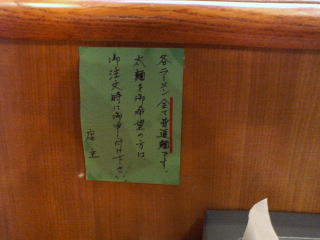 各ラーメン全て普通麺です。
太麺を御希望の方は
御注文時に御申し付け下さい。
店主